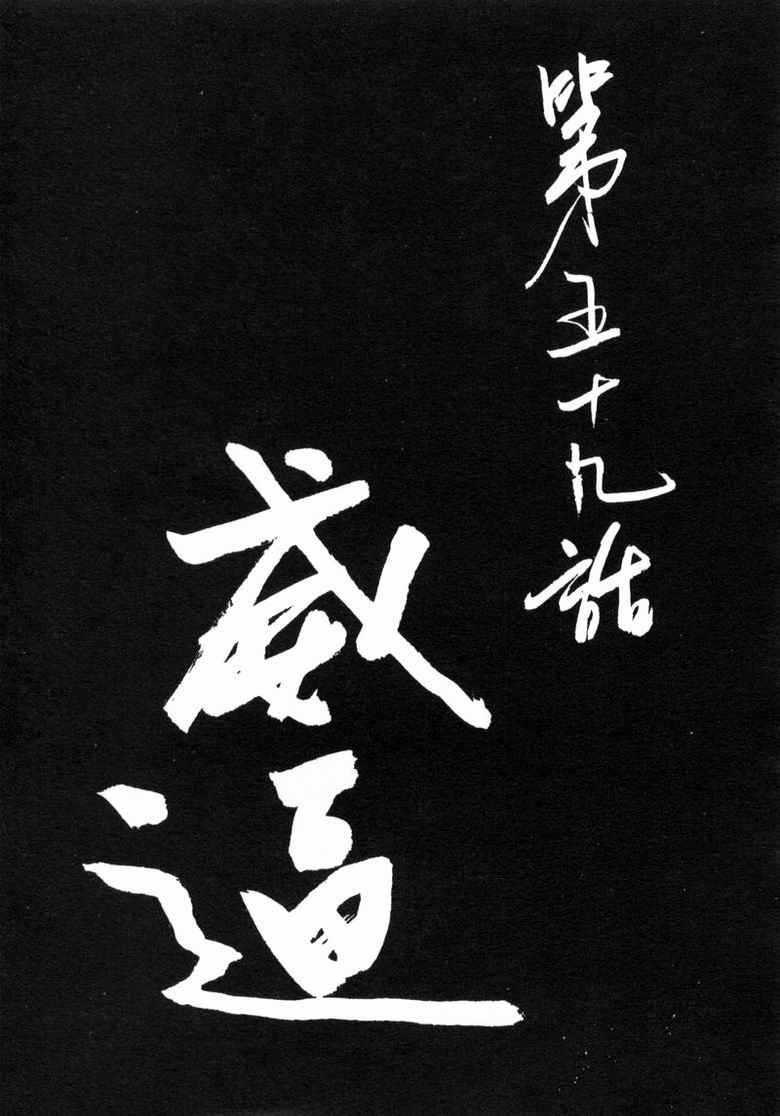 第五十九話
威逼